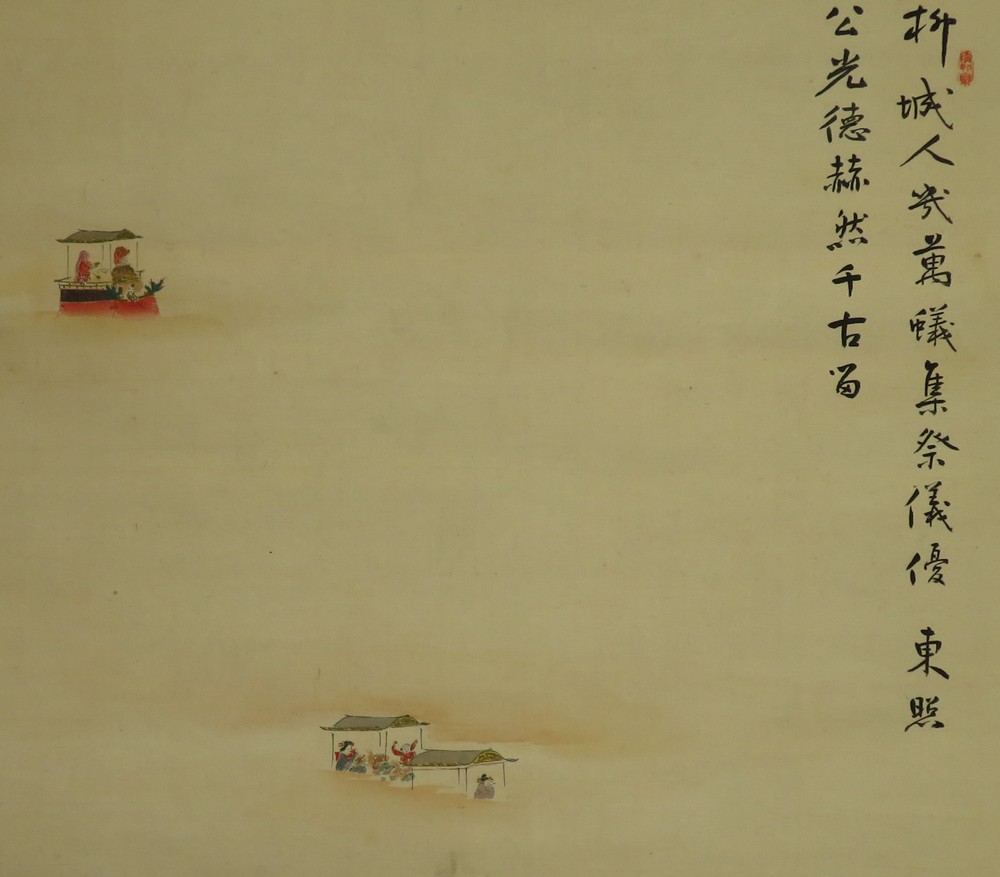 柳城人幾萬蟻集祭儀優 東照
公光徳赫然千古留